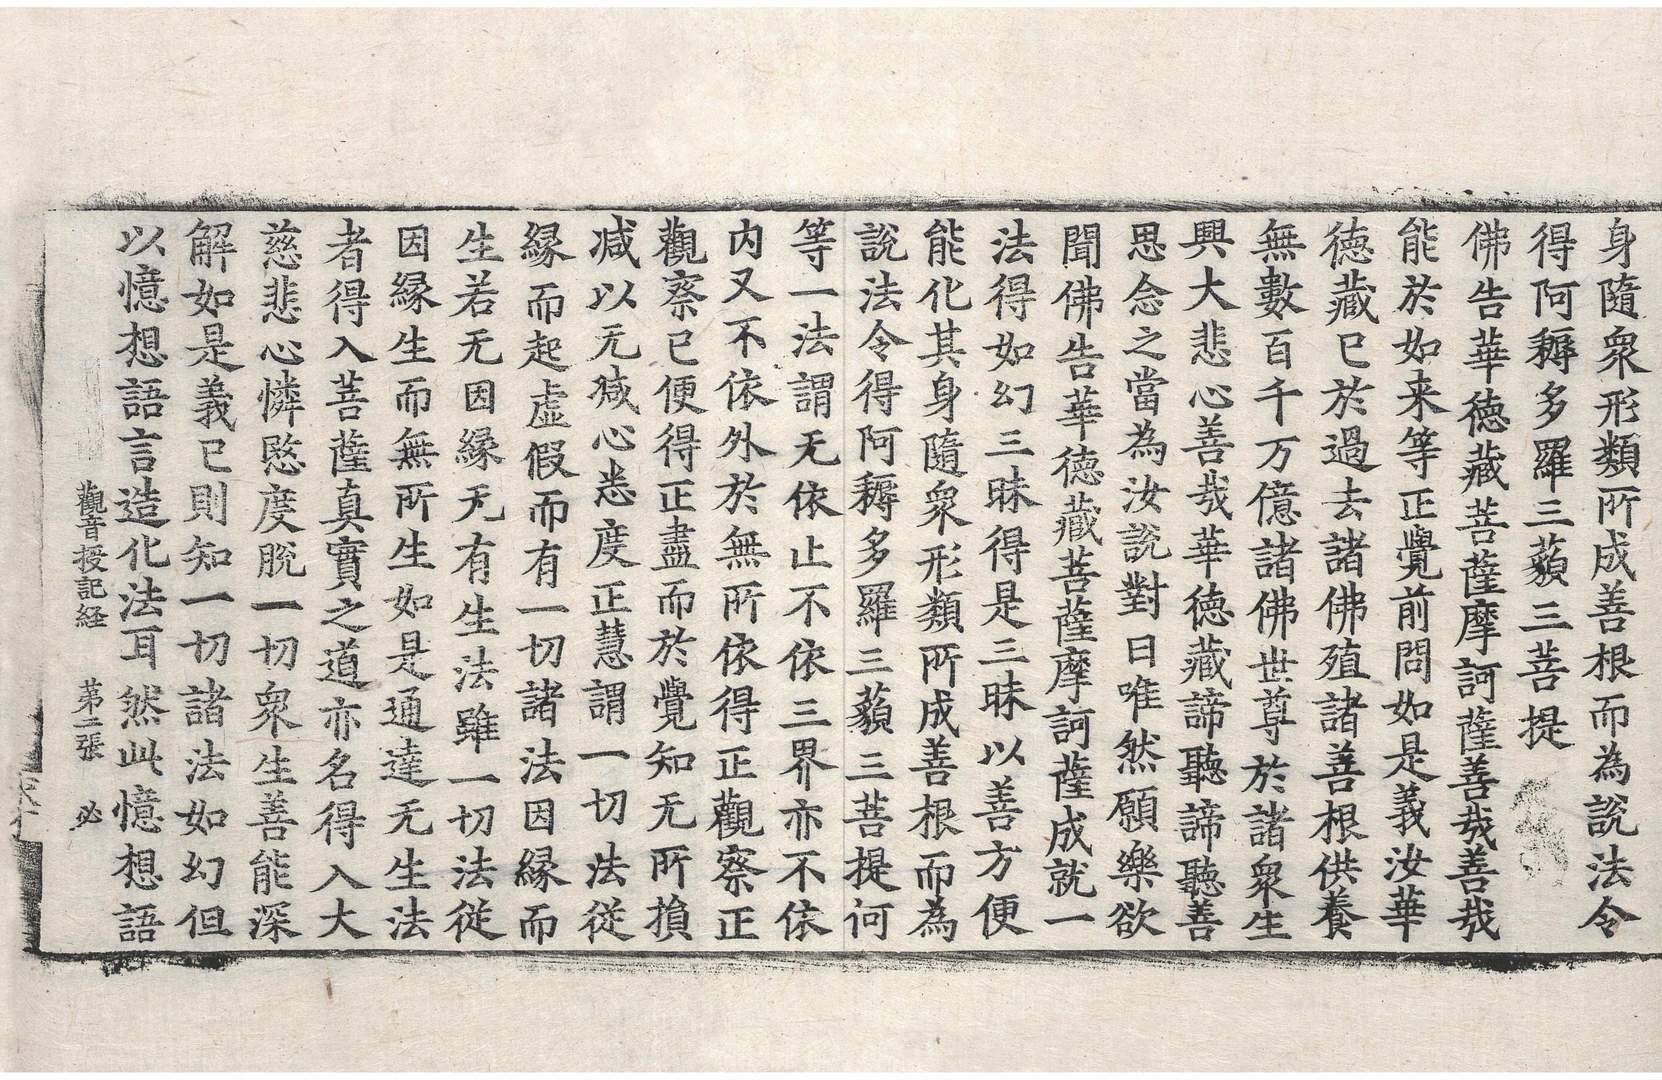 身隨衆形類所成善根而為說法令
得阿耨多羅三藐三菩提
佛告華德藏菩薩摩訶薩善哉善哉
能於如来等正覺前問如是義汝華
德藏已於過去諸佛殖諸善根供養
無數百千万億諸佛世尊於諸衆生
興大悲心善哉華德藏諦聽諦聽善
思念之當為汝說對曰唯然願樂欲
聞佛告華德藏菩薩摩訶薩成就一
法得如幻三昧得是三昧以善方便
能化其身隨衆形類所成善根而為
說法令得阿耨多羅三藐三菩提何
等一法謂无依止不依三界亦不依
内又不依外於無所依得正觀察正
觀察已便得正盡而於覺知无所損
减以无减心悉度正慧謂一切法従
緣而起虚假而有一切諸法因緣而
生若无因緣无有生法雖一切法従
因緣生而無所生如是通達无生法
者得入菩薩真實之道亦名得入大
慈悲心憐愍度脫一切衆生善能深
解如是義已則知一切諸法如幻但
以憶想語言造化法耳然此憶想語
觀音授記経　第二張　必